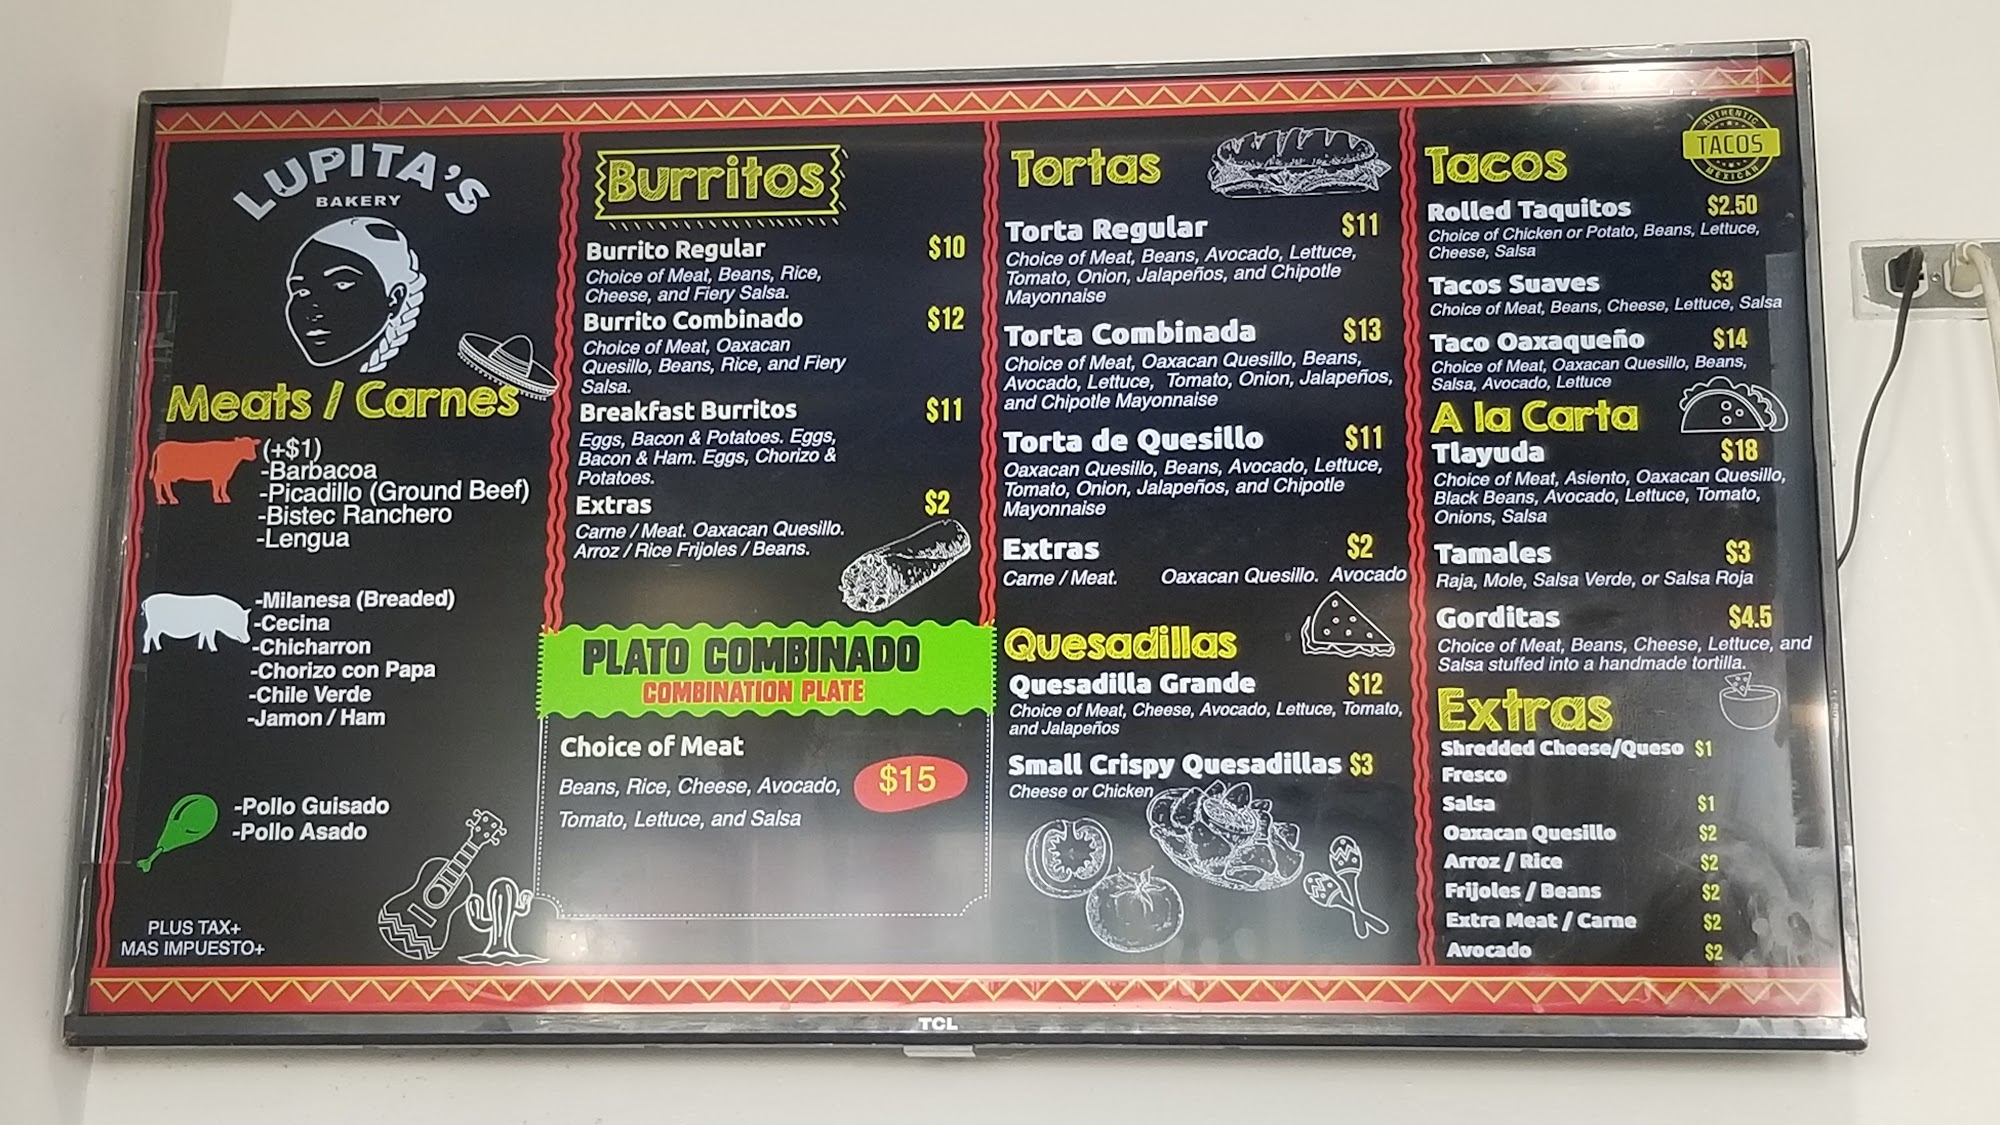 LUPITA'S
BAKERY
Meats / Carnes
(+$1)
-Barbacoa
-Picadillo (Ground Beef)
-Bistec Ranchero
-Lengua
-Milanesa (Breaded)
-Cecina
-Chicharron
-Chorizo con Papa
-Chile Verde
-Jamon / Ham
-Pollo Guisado
-Pollo Asado
PLUS TAX+
MAS IMPUESTO+
Burritos
Burrito Regular $10
Choice of Meat, Beans, Rice,
Cheese, and Fiery Salsa.
Burrito Combinado $12
Choice of Meat, Oaxacan
Quesillo, Beans, Rice, and Fiery
Salsa.
Breakfast Burritos $11
Eggs, Bacon & Potatoes. Eggs,
Bacon & Ham. Eggs, Chorizo &
Potatoes.
Extras $2
Carne / Meat. Oaxacan Quesillo.
Arroz / Rice Frijoles / Beans.
PLATO COMBINADO
COMBINATION PLATE
Choice of Meat
Beans, Rice, Cheese, Avocado, $15
Tomato, Lettuce, and Salsa
Tortas
Torta Regular $11
Choice of Meat, Beans, Avocado, Lettuce,
Tomato, Onion, Jalapeños, and Chipotle
Mayonnaise
Torta Combinada $13
Choice of Meat, Oaxacan Quesillo, Beans,
Avocado, Lettuce, Tomato, Onion, Jalapeños,
and Chipotle Mayonnaise
Torta de Quesillo $11
Oaxacan Quesillo, Beans, Avocado, Lettuce,
Tomato, Onion, Jalapeños, and Chipotle
Mayonnaise
Extras $2
Carne / Meat. Oaxacan Quesillo. Avocado
Quesadillas
Quesadilla Grande $12
Choice of Meat, Cheese, Avocado, Lettuce, Tomato,
and Jalapeños
Small Crispy Quesadillas $3
Cheese or Chicken
Tacos
AUTHENTIC
TACOS
MEXICAN
Rolled Taquitos $2.50
Choice of Chicken or Potato, Beans, Lettuce,
Cheese, Salsa
Tacos Suaves $3
Choice of Meat, Beans, Cheese, Lettuce, Salsa
Taco Oaxaqueño $14
Choice of Meat, Oaxacan Quesillo, Beans,
Salsa, Avocado, Lettuce
A la Carta
Tlayuda $18
Choice of Meat, Asiento, Oaxacan Quesillo,
Black Beans, Avocado, Lettuce, Tomato,
Onions, Salsa
Tamales $3
Raja, Mole, Salsa Verde, or Salsa Roja
Gorditas $4.5
Choice of Meat, Beans, Cheese, Lettuce, and
Salsa stuffed into a handmade tortilla.
Extras
Shredded Cheese/Queso $1
Fresco
Salsa $1
Oaxacan Quesillo $2
Arroz / Rice $2
Frijoles / Beans $2
Extra Meat / Carne $2
Avocado $2
TCL